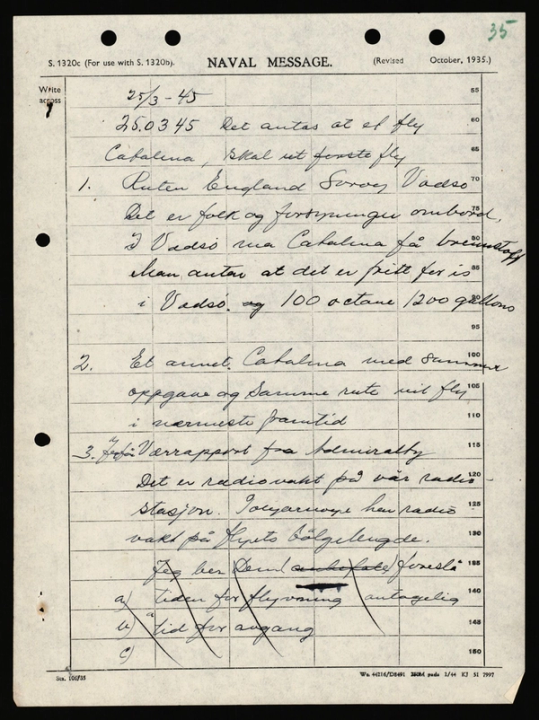 35
S. 1320c (For use with S. 1320b). NAVAL MESSAGE. (Revised October, 1935.)
Write across
25/3-45 55
250345 Det antas at et fly 60
Catalina, skal ut første fly 65
1. Ruten England Soroy Vadsø 70
Det er folk og forsyninger ombord, 75
I Vadsø ma Catalina få brennstoff 80
Man antar at det er fritt for is
i Vadsø. og 100 octane 1200 gallons
95
2. Et annet Catalina med samme 100
oppgave og samme rute vil fly 105
i nærmeste framtid 110
3. Værrapport fra Admiralty 115
Det er radiovakt på vår radio 120
stasjon. har radio 125
vakt på flyets bölgelengde. 130
Jeg ber Dem foreslå 135
a) tiden for flyvning antagelig 140
b) tid for avgang
c) 150